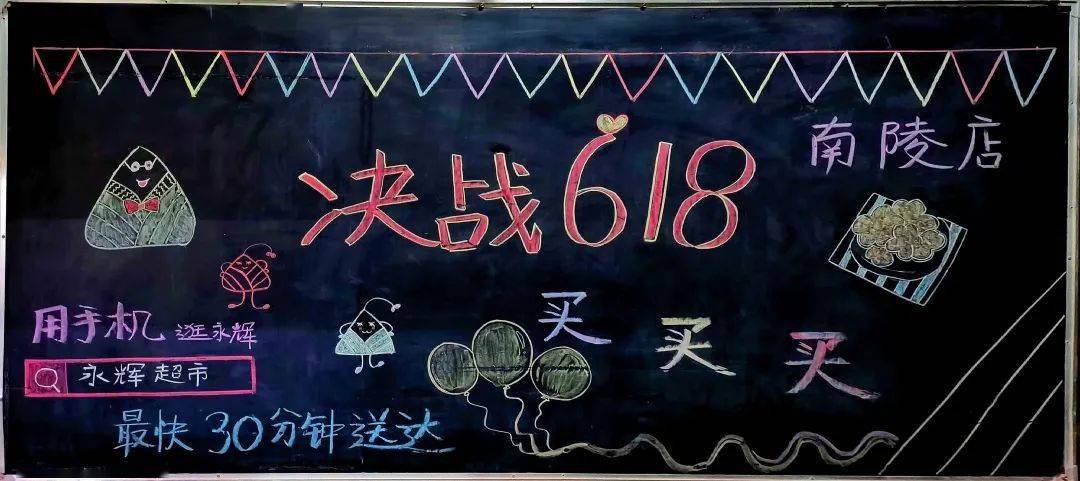 南陵店
决战618
买买买
用手机 逛永辉
永辉超市
最快30分钟送达